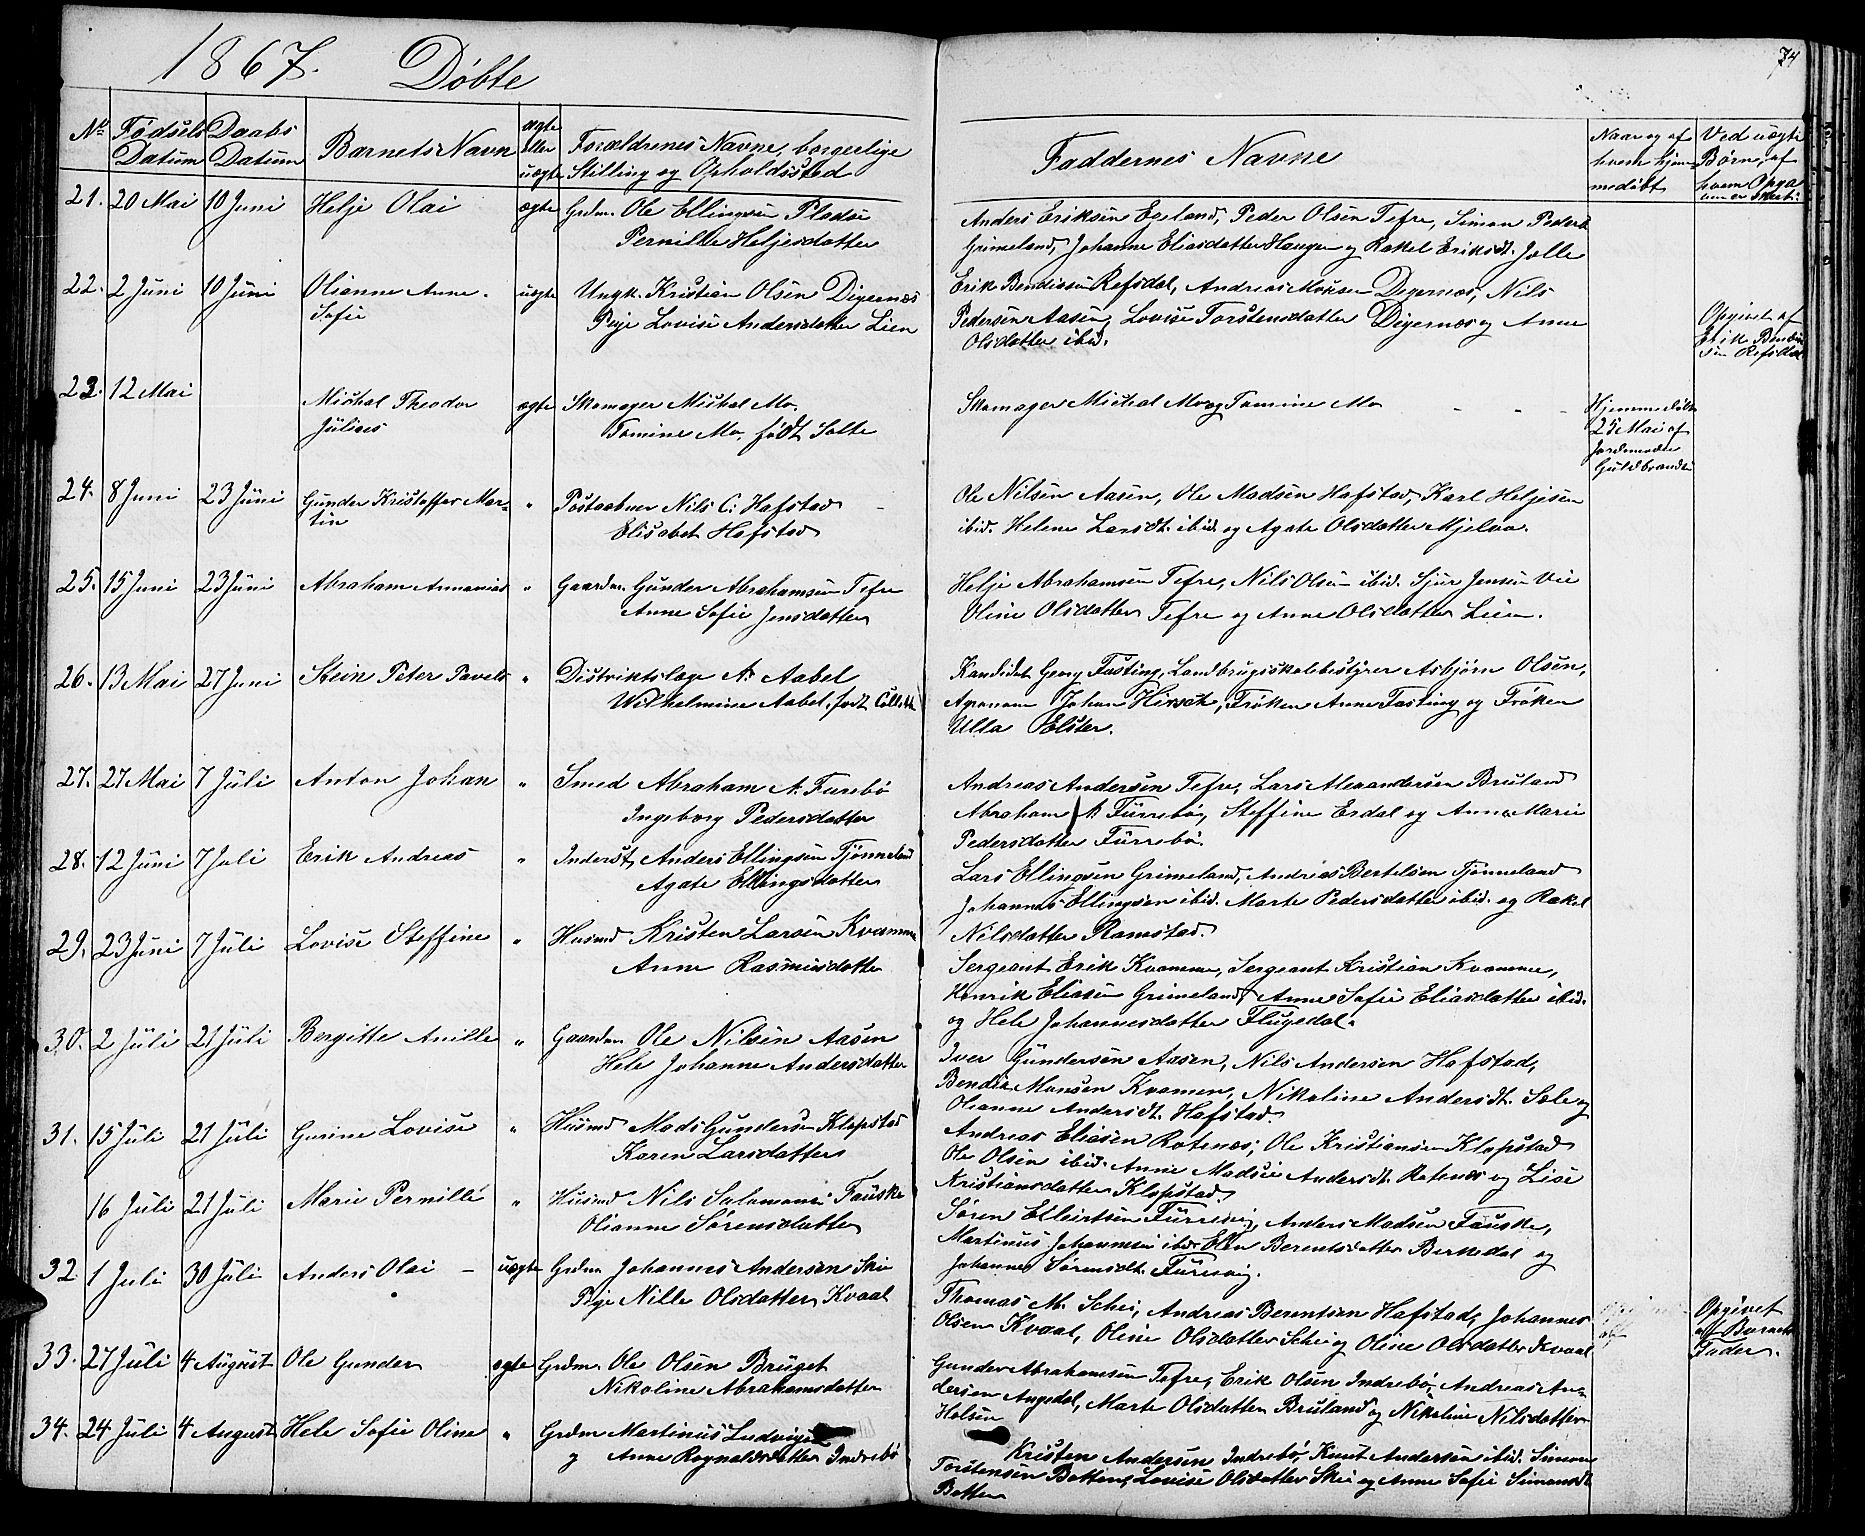 1867. Döbte
74
No Fødsels Datum Daabs Datum Barnets Navn ægte eller uægte Forældrenes Navne, borgerlige Stilling og Opholdssted
Faddernes Navne
Naar og af hvem hjemmedöbt
Ved uægte Børn, af hvem Opgaven er skeet.
21. 20 Mai 10 Juni Helje Olai ægte Grdm. Ole Ellingsen Pladsen
Pernille Heljesdatter
Anders Eriksen Egeland, Peder Olsen Tefre, Simon Peders.
Grimeland, Johanne Eliasdatter Haugen og Rakel Eriksdt. Jølle
22. 2 Juni 10 Juni Olianne Anne uægte Ungk. Kristian Olsen Digernæs
Sofie Pige Lovise Andersdatter Lien
Erik Bendixsen Refsdal, Andreas Monsen Degernæs, Nils
Pedersen Aasen, Lovise Torstensdatter Digernæs og Anne
Olsdatter ibid.
Opgivet af
Erik Bendix
sen Refsdal
23. 12 Mai Michal Theodor ægte Skomager Michal Mo.
Julius Tomine Mo. født Solte
Skomager Michal Mo og Tomine Mo - - -
Hjemmedöbt
25 Mai af
Jordmoder
Guldbrandsen
24. 8 Juni 23 Juni Gunder Kristoffer Mar- " Postaabner Nils C. Hafstad
tin Elisabet Hafstad
Ole Nilsen Aasen, Ole Madsen Hafstad, Karl Heljesen
ibid. Helene Larsdt. ibid. og Agate Olsdatter Mjelva.
25. 15 Juni 23 Juni Abraham Annanias " Gaardm. Gunder Abrahamsen Tefre
Anne Sofie Jensdatter
Helje Abrahamsen Tefre, Nils Olsen ibid. Sjur Jensen Vie
Oline Olsdatter Tefre og Anne Olsdatter Lien.
26. 13 Mai 27 Juni Stein Peter Pavels " Distriktslæge A. Aabel
Wilhelmine Aabel, født Collett
Kandidat Georg Fasting, Landbrugsskolebestyrer Asbjørn Olsen,
Agronom Johan Hirsch, Frøken Anne Fasting og Frøken
Ulla Elster.
27. 27 Mai 7 Juli Anton Johan " Smed Abraham A. Furebø
Ingeborg Pedersdatter
Andreas Andersen Tefre, Lars Alexandersen Bruland
Abraham A. Fürrebø, Steffine Erdal og Anna Marie
Pedersdatter Fürrebø.
28. 12 Juni 7 Juli Erik Andreas " Inderst, Anders Ellingsen Tjønneland
Agate Ellingsdatter
Lars Ellingsen Grimeland, Andreas Bertelsen Tjønneland
Johannes Ellingsen ibid. Marte Pedersdatter ibid. og Rakel
Nilsdatter Ramstad.
29. 23 Juni 7 Juli Lovise Steffine " Husmd Kristen Larsen Kvamme
Anne Rasmusdatter
Sergeant Erik Kvamme, Sergeant Kristian Kvamme,
Henrik Eliasen Grimeland, Anne Sofie Eliasdatter ibid.
og Hele Johannesdatter Flugedal.
30. 2 Juli 21 Juli Bergitte Anille " Gaardm. Ole Nilsen Aasen
Hele Johanne Andersdatter
Iver Gundersen Aasen, Nils Andersen Hafstad,
Bendix Monsen Kvamen, Nikoline Andersdt. Sole og
Olianne Andersdt. Hafstad.
31. 15 Juli 21 Juli Gurine Lovise " Husmd Mads Gundersen Klopstad
Karen Larsdatter
Andreas Eliasen Rotenæs, Ole Kristiansen Klopstad
Ole Olsen ibid. Anne Madsie Andersdt. Rotenæs og Lise
Kristiansdatter Klopstad
16 Juli 21 Juli Marie Pernille " Husmd Nils Salomons. Fauske
Olianne Sørensdatter
Søren Elleirtsen Fürrevig, Anders Madsen Fauske,
Martinus Johannesen ibid. Ellen Berentsdatter Birkedal og
Johanne Sørensdt. Fürevig.
32 1 Juli 30 Juli Anders Olai - uægte Grdm Johannes Andersen Skei
Pige Nille Olsdatter Kvaal
Thomas M. Schei, Andreas Berentsen Hafstad, Johannes
Olsen Kvaal, Oline Olsdatter Schei og Oline Olsdatter Kvaal
Opgivet
af Barnets
Fader.
33. 27 Juli 4 August Ole Gunder ægte Grdm. Ole Olsen Bruget
Nikoline Abrahamsdatter
Gunder Abrahamsen Tefre, Erik Olsen Indrebø, Andreas An-
dersen Angedal, Marte Olsdatter Bruland og Nikoline Nilsdatter
Holsen
34. 24 Juli 4 August Hele Sofie Oline " Grdm Martinus Ludvigsen
og Anne Ragnaldsdatter Indrebø
Kristen Andersen Indrebø, Knut Andersen ibid. Simon
Torstensen Botten, Lovise Olsdatter Skei og Anne Sofie Simonsdt
Botten